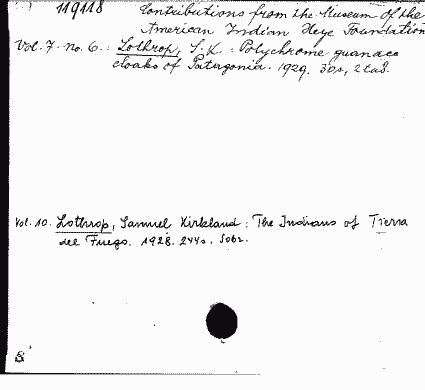 119118 Contributions from the Museum of the
American Indian Heye Foundation
Vol. 7. no. 6.: Lothrop, S. K.: Polychrome guanaco
cloaks of Patagonia. 1929. 30s, 2 tab.
Vol. 10. Lothrop, Samuel Kirkland: The Indians of Tierra
del Fuego. 1928. 244s.